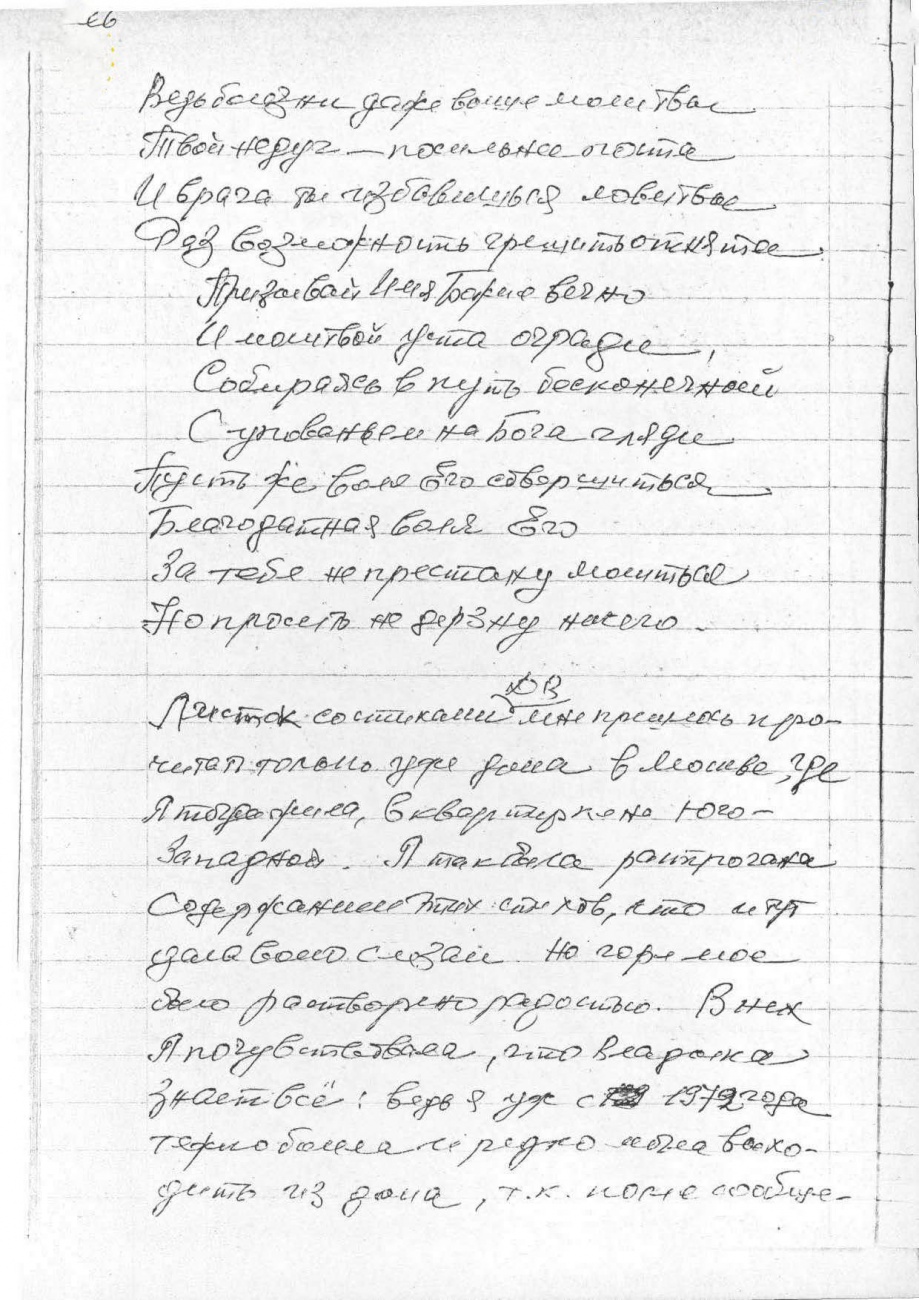 Ведь болезни даже выше молитвы
Твой недуг — посильнее поста
И врага ты избавишься ловитвы
Раз возможность грешить отнята
Призывай Имя Божие вечно
И молитвой уста огради,
Собираясь в путь бесконечный
С упованьем на Бога гляди
Пусть же воля Его совершиться
Благодатная воля Его
За тебе не престану молиться
Но просить не дерзну ничего.
Листок со стихами мне пришлось про-
читать только уже дома в Москве, где
я тогда жила, в квартирке на Юго-
Западной. Я так была растрогана
содержанием этих стихов, что тут
дала волю слезам. Но горе мое
было растворено радостью. В них
я почувствовала, что Владыка
знает всё: ведь я уж с 1972 года
тяжело болела и редко могла выхо-
дить из дома, т.к. после сообще-